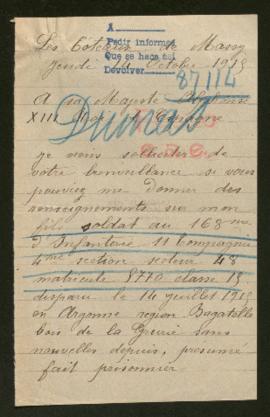 A
Pedir informes
Que se haca así
Devolver
Les Coteaux de Massy
Jeudi 14 Octobre 1915
87114
A sa Majesté Alphonse
XIII Roi d'Espagne
Dumas
je vous solliciter de
votre bienveillance si vous
pouviez me donner des
renseignements sur mon
fils soldat au 168me
d'Infanterie 11 Compagnie
4me section secteur 48
matricule 8770 classe 15
disparu le 14 juillet 1915
en Argonne région Bagatelle
bois de la Grurie sans
nouvelles depuis, présumé
fait prisonnier